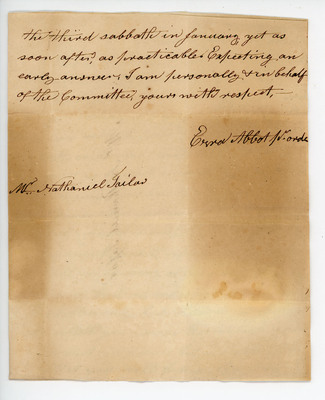 the third sabbath in January, yet as
soon after, as practicable. Expecting an
early answer, I am personally, & in behalf
of the Committee, yours with respect,
Ezra Abbot pr. order
Mr. Nathaniel Tailor